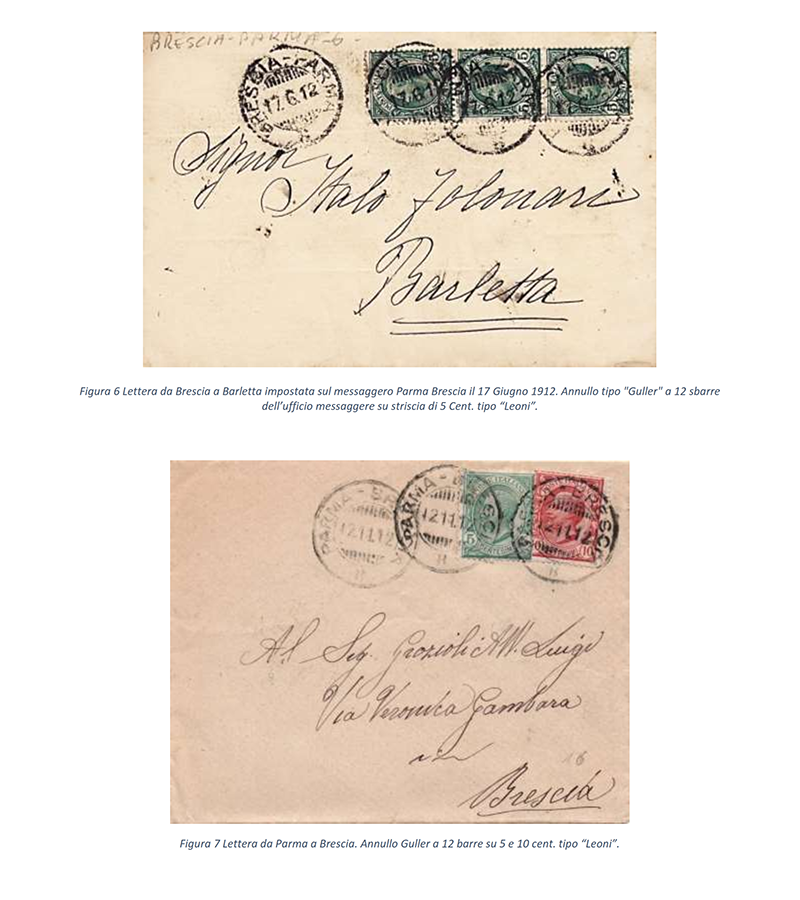 BRESCIA-PARMA-6-
BRESCIA-PARMA
17.6.12
17.6.12
17.6.12
5
5
5
Signor
Italo
Barletta
Figura 6 Lettera da Brescia a Barletta impostata sul messaggero Parma Brescia il 17 Giugno 1912. Annullo tipo "Guller" a 12 sbarre
dell’ufficio messaggere su striscia di 5 Cent. tipo “Leoni”.
PARMA-BR
12.11.12
PARMA-B
12.11.12
5
PARMA-BRESCIA
12.11.12
10
Al Sig. Grazioli Avv. Luigi
Via Veronica Gambara
in
16
Brescia
Figura 7 Lettera da Parma a Brescia. Annullo Guller a 12 barre su 5 e 10 cent. tipo “Leoni”.